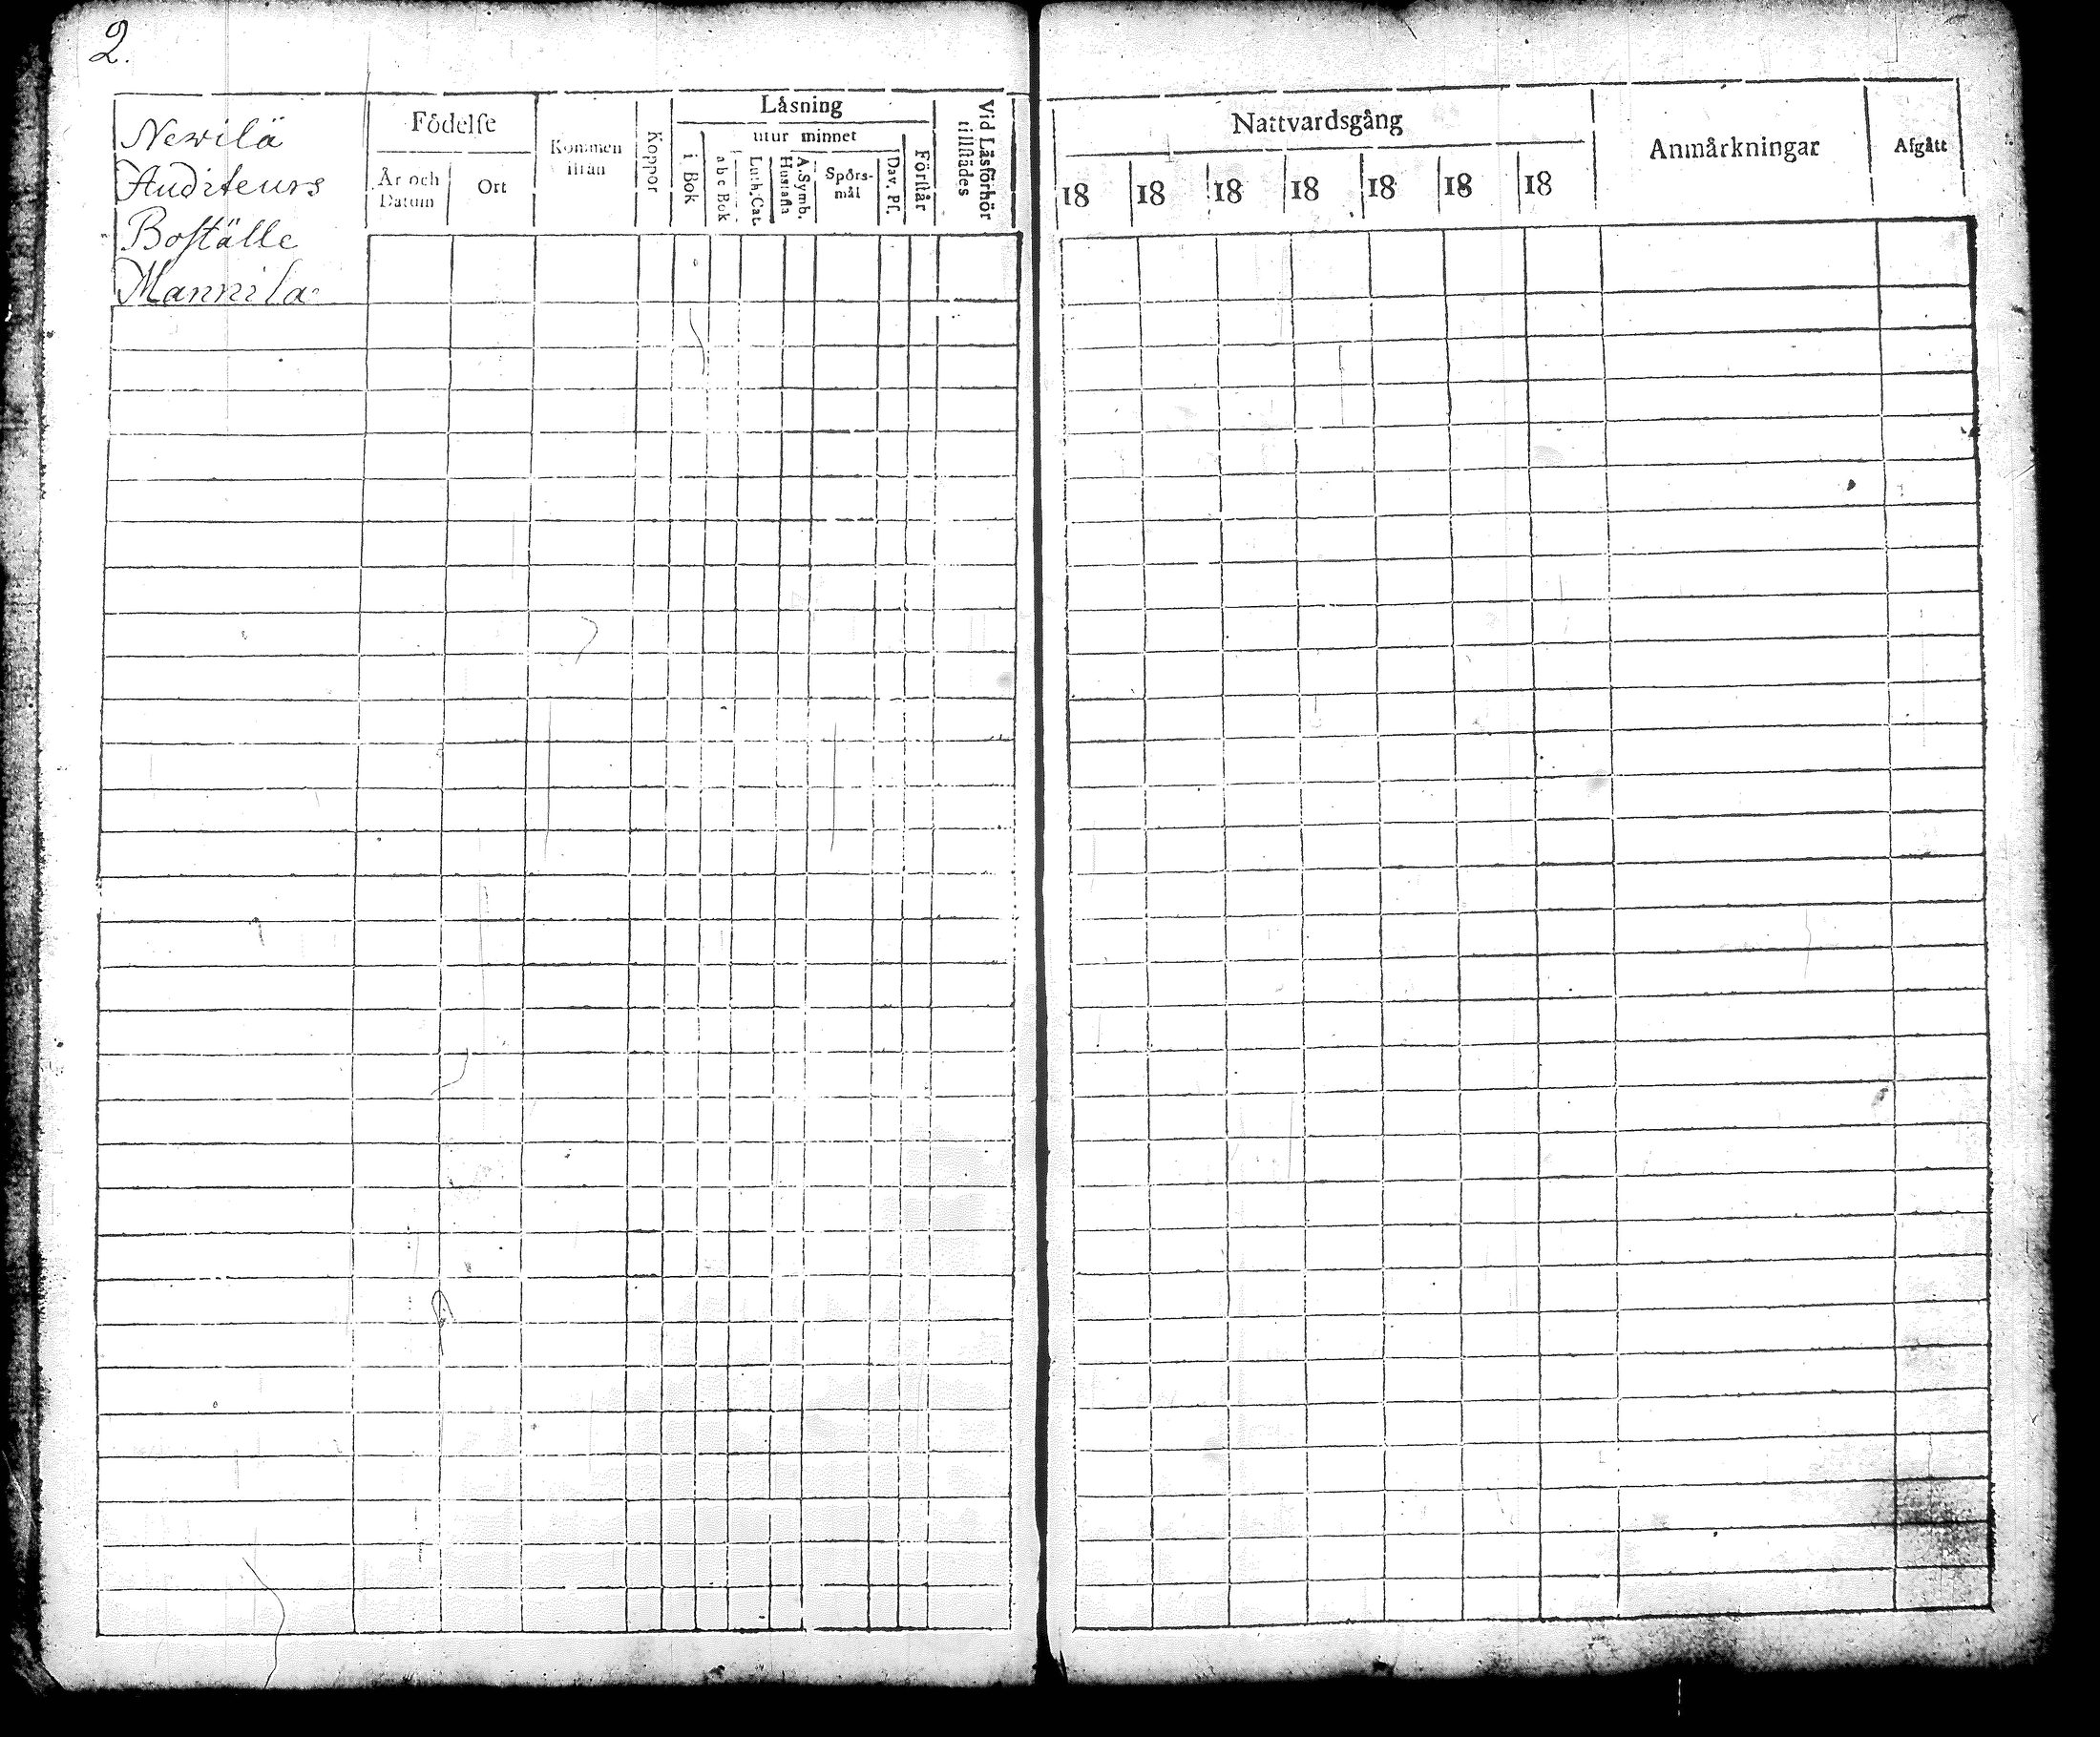 2.
Newilä
Auditeurs
Boſtälle
Mannila
Födelſe
År och
Datum
Ort
Kommen
ifrån
Koppor
Låsning
i Bok
utur minnet
abc Bok
Luth. Cat.
Huſtafla
A. Symb.
Spörs-
mål
Dav. Pſ.
Förſtår
Vid Låsförhör
tillſtädes
Nattvardsgång
18 18 18 18 18 18 18
Anmårkningar
Afgått